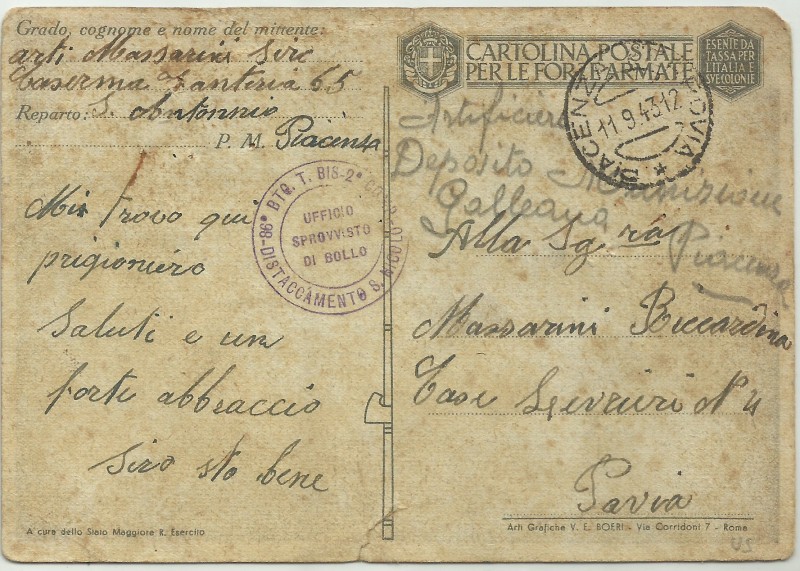 Grado, cognome e nome del mittente:
arti Massarini Siro
Caserma Fanteria 65
Reparto: S. Antonnio
P. M. Piacenza
Mi trovo qui
prigioniero
Saluti e un
forte abbraccio
Siro sto bene
A cura dello Stato Maggiore R. Esercito
BTG. T. BIS-2°
-86- DISTACCAMENTO S. NICOLO'
UFFICIO
SPROVVISTO
DI BOLLO
CARTOLINA POSTALE
PER LE FORZE ARMATE
ESENTE DA
TASSA PER
L'ITALIA E
SVE COLONIE
PIACENZA FERROVIA
11.9.43.12
Artificiere
Deposito Munizione
Galleana
Piacenza
Alla Sg.ra
Massarini Riccardina
Case N 4
Pavia
Arti Grafiche V. E. BOERI - Via Corridoni 7 - Roma